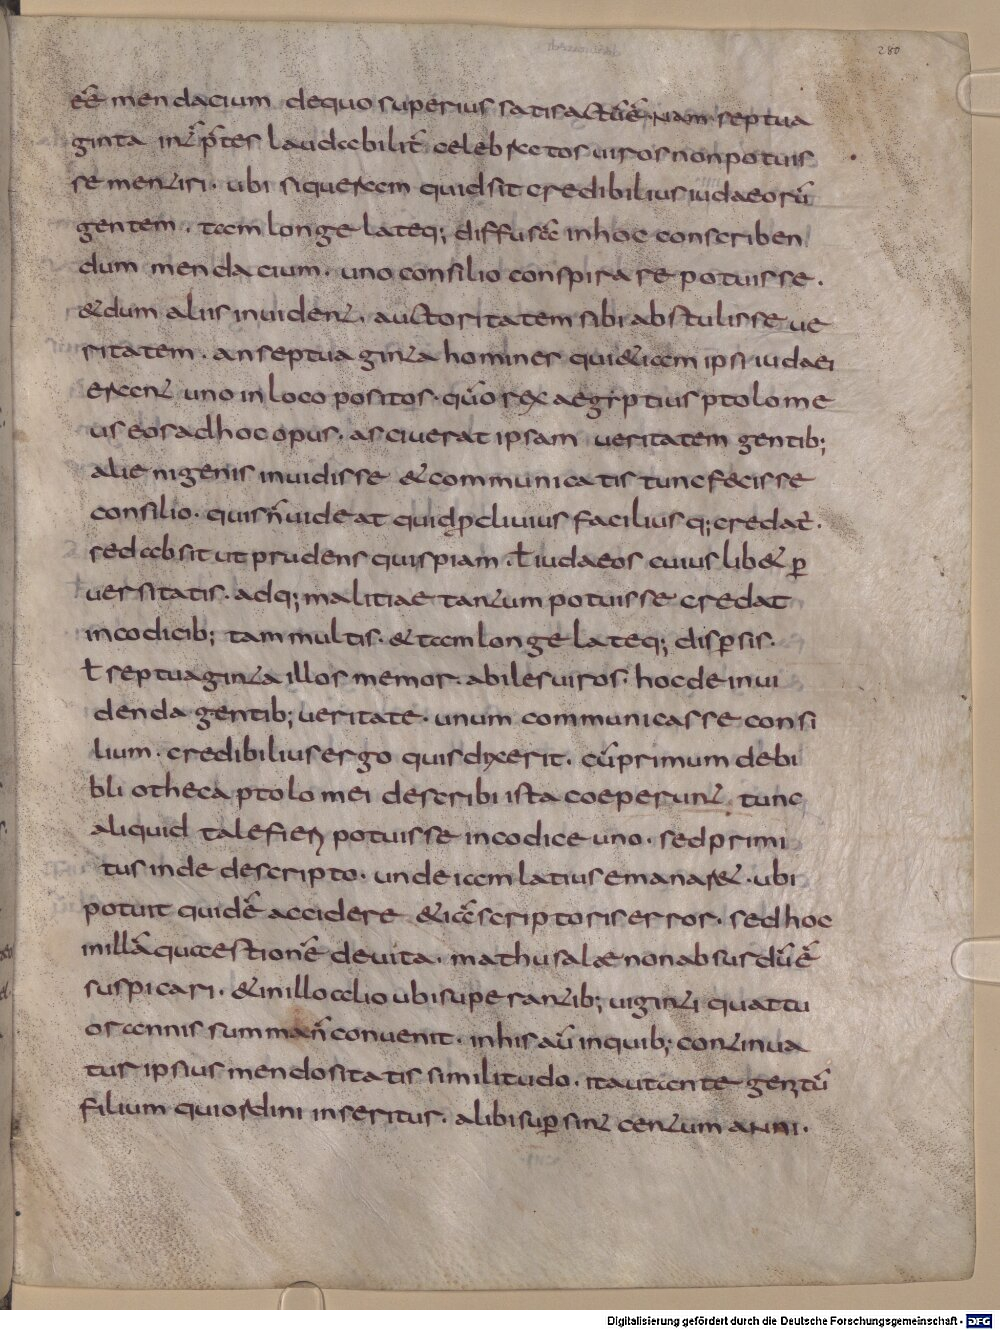 280
eē̄ mendacium dequo superius satis actūē. Nam septua
ginta int̄p̄tes laudabilit̄ celebratos uiros non potuis
se mentiri. ubi si queram quid sit credibilius iudaeorū
gentem. tam longe lateq; diffusā inhoc conscriben
dum mendacium. uno consilio conspirare potuisse.
&dum aliis inuident. auctoritatem sibi abstulisse ue
ritatem. an septuaginta homines qui&iam ipsi iudaei
erant uno in loco positos. qūo rex aegiptius ptolome
us eos adhoc opus. asciuerat ipsam ueritatem gentib;
alienigenis inuidisse &communicatis tunc fecisse
consilio. quis n̄ uideat quid ꝓcliuius facilius q; credat̄.
sed absit ut prudens quispiam. ł iudaeos cuius lib& ꝑ
uersitatis. adq; malitiae tantum potuisse credat
in codicib; tam multis. &tam longe lateq; disꝑsis.
ł septuaginta illos memor. abiles uiros. hoc de inui
denda gentib; ueritate. unum communicasse consi
lium. credibilius ergo quis dixerit. cū primum debi
bliotheca ptolomei describi ista coeperunt. tunc
aliquid tale fieri potuisse in codice uno. sed primi
tus inde descripto. unde iam latius emanar&. ubi
potuit quidē accidere &iā scriptoris error. sed hoc
in illā quaestionē deuita. mathusalae non absurdū ē
suspicari. &in illo alio ubi superantib; uiginti quattu
or annis summa n̄ conuenit. in his aū in quib; continua
tur ipsius mendositatis similitudo. ita ut ante genitū
filium qui ordini inseritur. alibi suꝑsint centum anni.
Digitalisierung gefördert durch die Deutsche Forschungsgemeinschaft - DFG